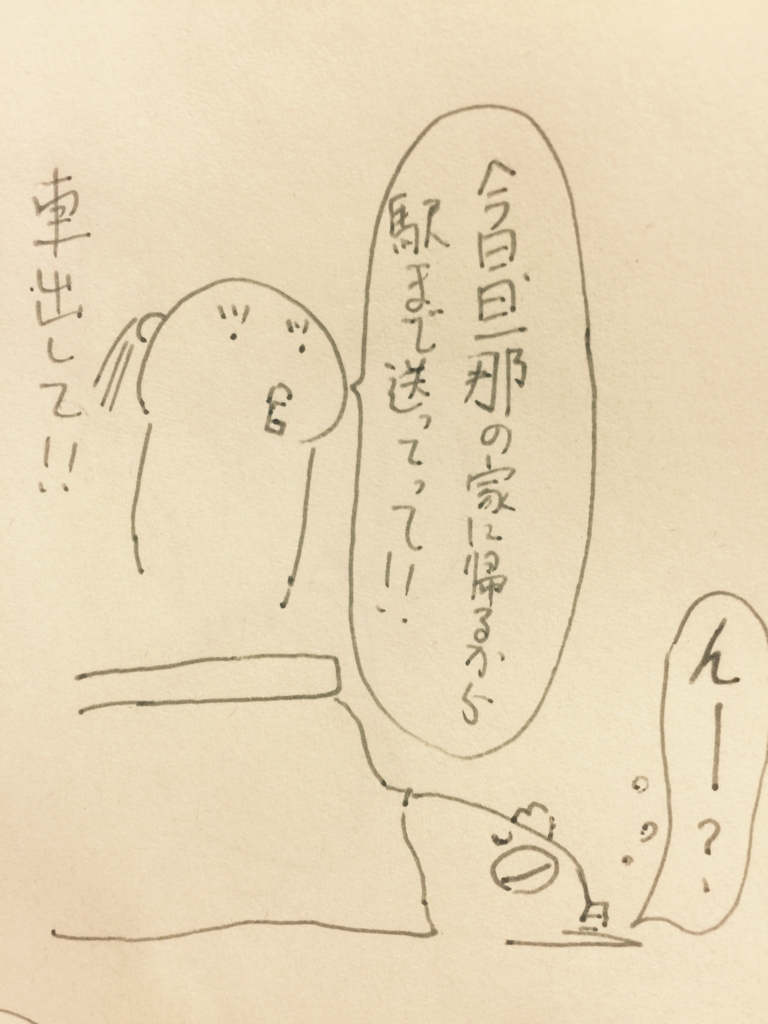 今日旦那の家に帰るから
駅まで送ってって!!
車出して!!
んー?